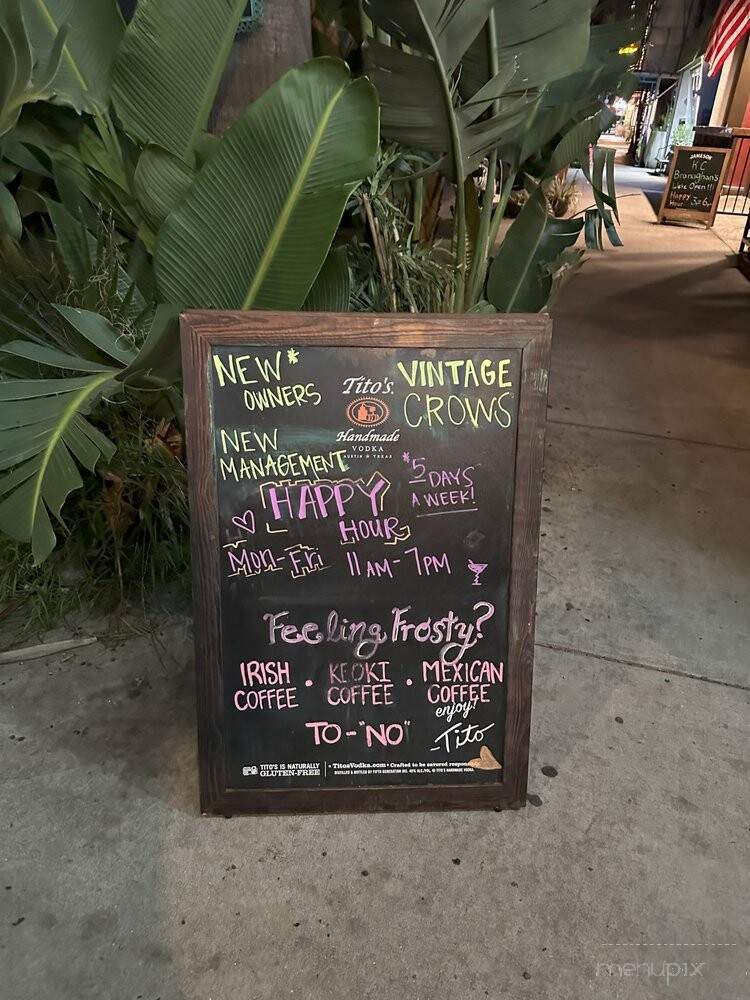 NEW*
OWNERS
Tito's
Handmade
VODKA
AUSTIN ★ TEXAS
VINTAGE
CROWS
NEW
MANAGEMENT
*5
DAYS
A WEEK!
HAPPY
HOUR
Mon-Fri 11AM-7PM
Feeling Frosty?
IRISH
COFFEE
•
KEOKI
COFFEE
•
MEXICAN
COFFEE
TO-"NO"
enjoy!
-Tito
TITO'S IS NATURALLY
GLUTEN-FREE
• TitosVodka.com • Crafted to be savored
DISTILLED & BOTTLED BY FIFTH GENERATION INC. 40% ALC./VOL. © TITO'S HANDMADE VODKA
JAMESON
K.C.
Branaghan's
We're Open!!!
Happy
Hour 3to6
menupix